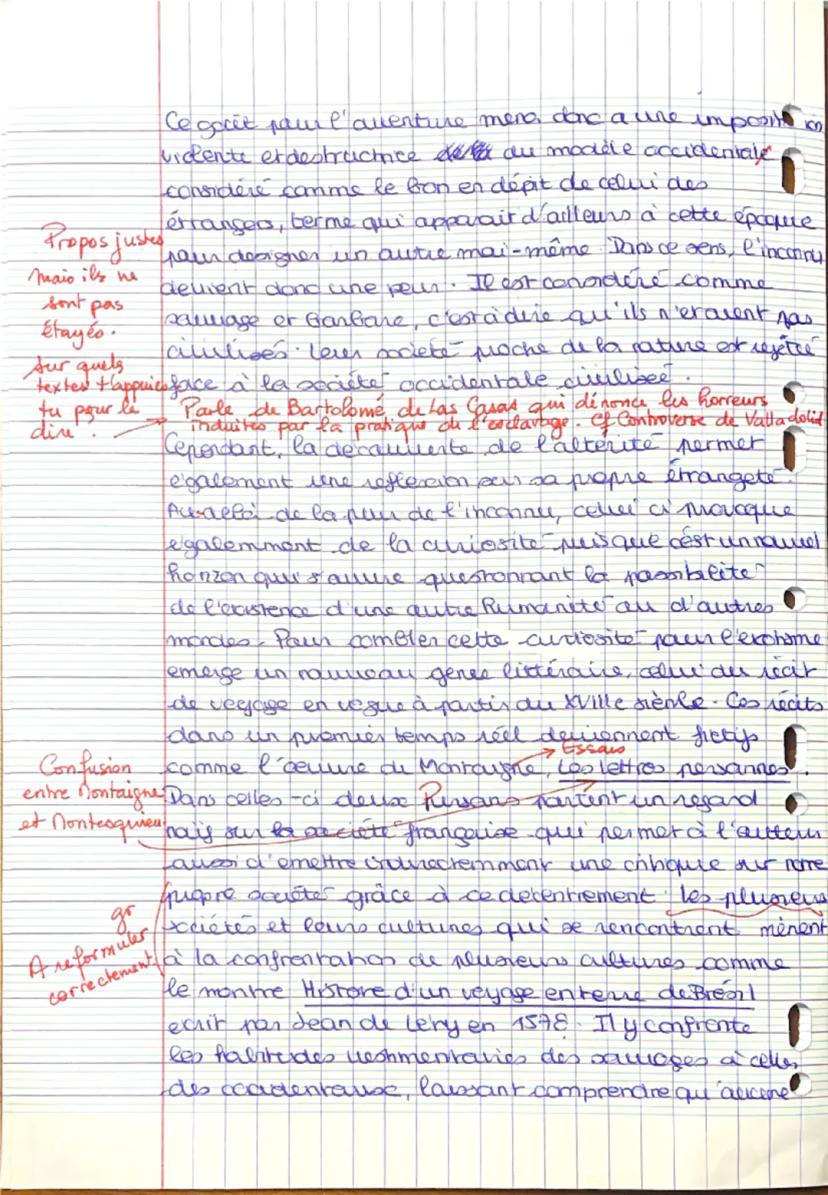 Ce goût pour l'aventure mena donc a une imposition
violente et destructrice du modèle occidentale
considéré comme le bon en dépit de celui des
étrangers, terme qui apparait d'ailleurs à cette époque
Propos justes
mais ils ne
sont pas
étayés.
Sur quels
textes t'appuies
tu pour le
dire.
pour designer un autre moi-même. Dans ce sens, l'inconnu
devient donc une peur. Il est considéré comme
sauvage et barbare, c'est à dire qu'ils n'étaient pas
civilisés. leur societé proche de la nature est rejetée
face à la société occidentale civilisée.
Parle de Bartolomé de Las Casas qui dénonce les horreurs
induites par la pratique de l'esclavage. Cf Controverse de Valladolid
Cependant, la découverte de l'altérité permet
également une reflexion sur sa propre étrangeté.
Au-delà de la peur de l'inconnu, celui ci provoque
egalemment de la curiosité puisque c'est un nouvel
horizon qui s'ouvre questionnant la possibilité
de l'existence d'une autre humanité ou d'autres
mondes. Pour combler cette curiosité pour l'exotisme
emerge un nouveau genre littéraire, celui du récit
de voyage en vogue à partir du XVIIIe siècle. Ces récits
dans un premier temps réel deviennent fictifs
Essais
comme l'œuvre de Montaigne, Les lettres persannes.
Confusion
entre Montaigne
et Montesquieu
Dans celles-ci deux Persans portent un regard
naïf sur la société française qui permet à l'auteur
aussi d'émettre indirectemment une critique sur notre
propre société grâce à ce decentrement. Les plusieurs
gr
A reformuler
correctement
sociétés et leurs cultures qui se rencontrent mènent
à la confrontation de plusieurs cultures comme
le montre Histoire d'un voyage en terre de Brésil
ecrit par Jean de Léry en 1578. Il y confronte
les habitudes vestimentaires des sauvages à celles
des occidentaux, laissant comprendre qu'aucune